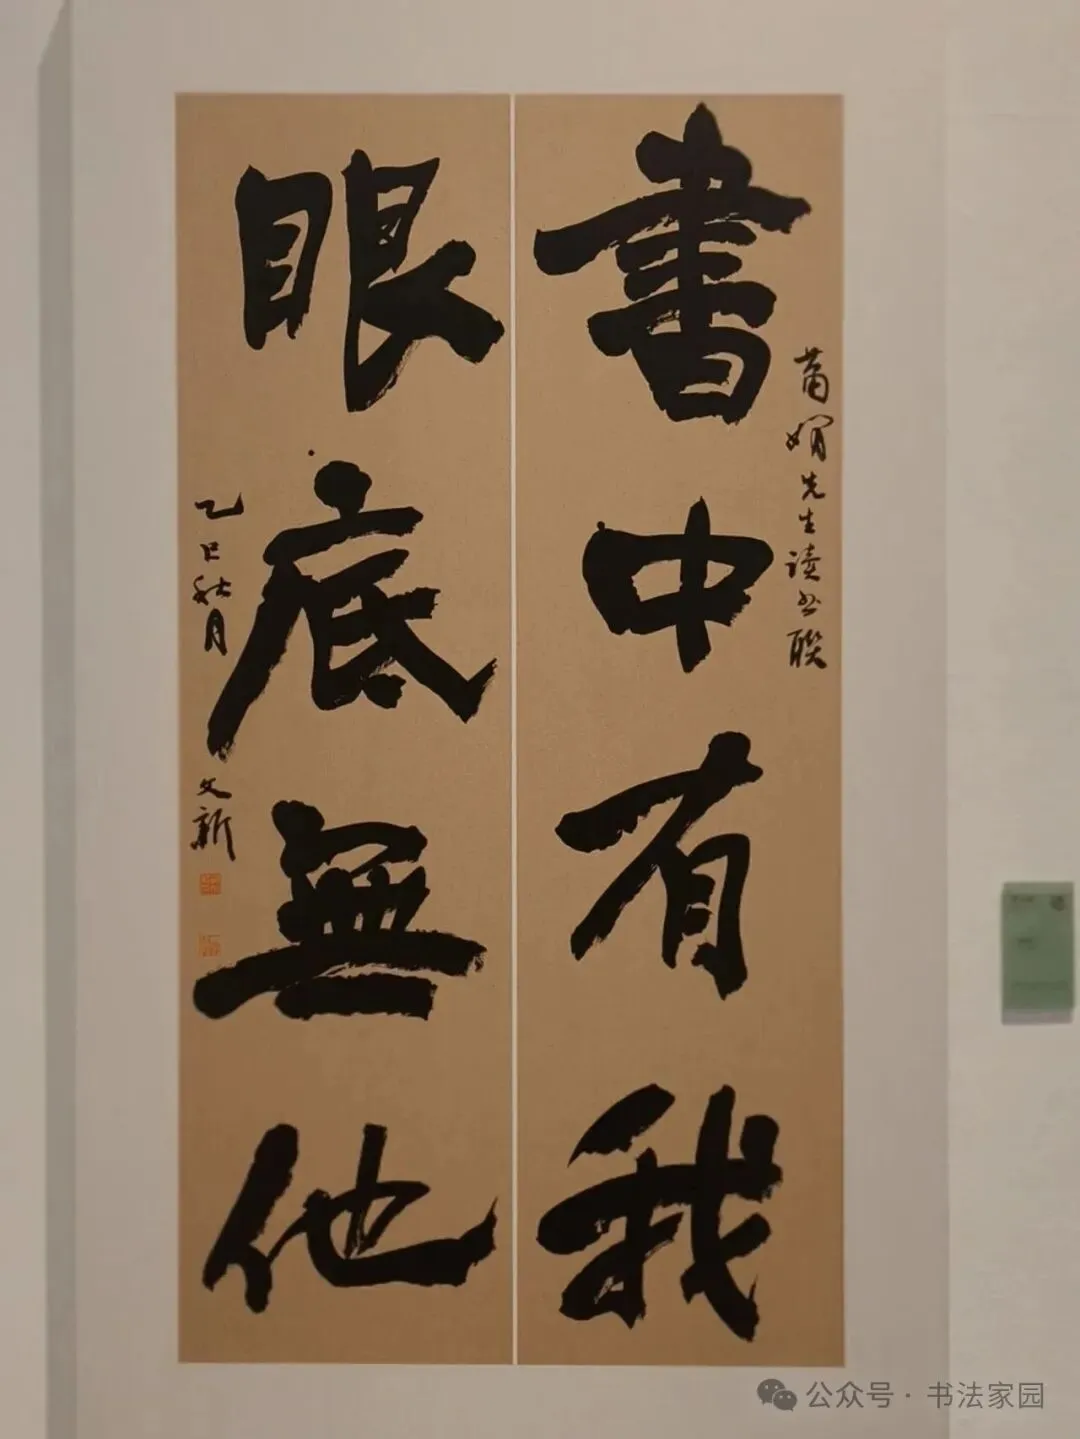 書中有我
先生读书联
眼底無他
乙巳秋月
文新
公众号·书法家园